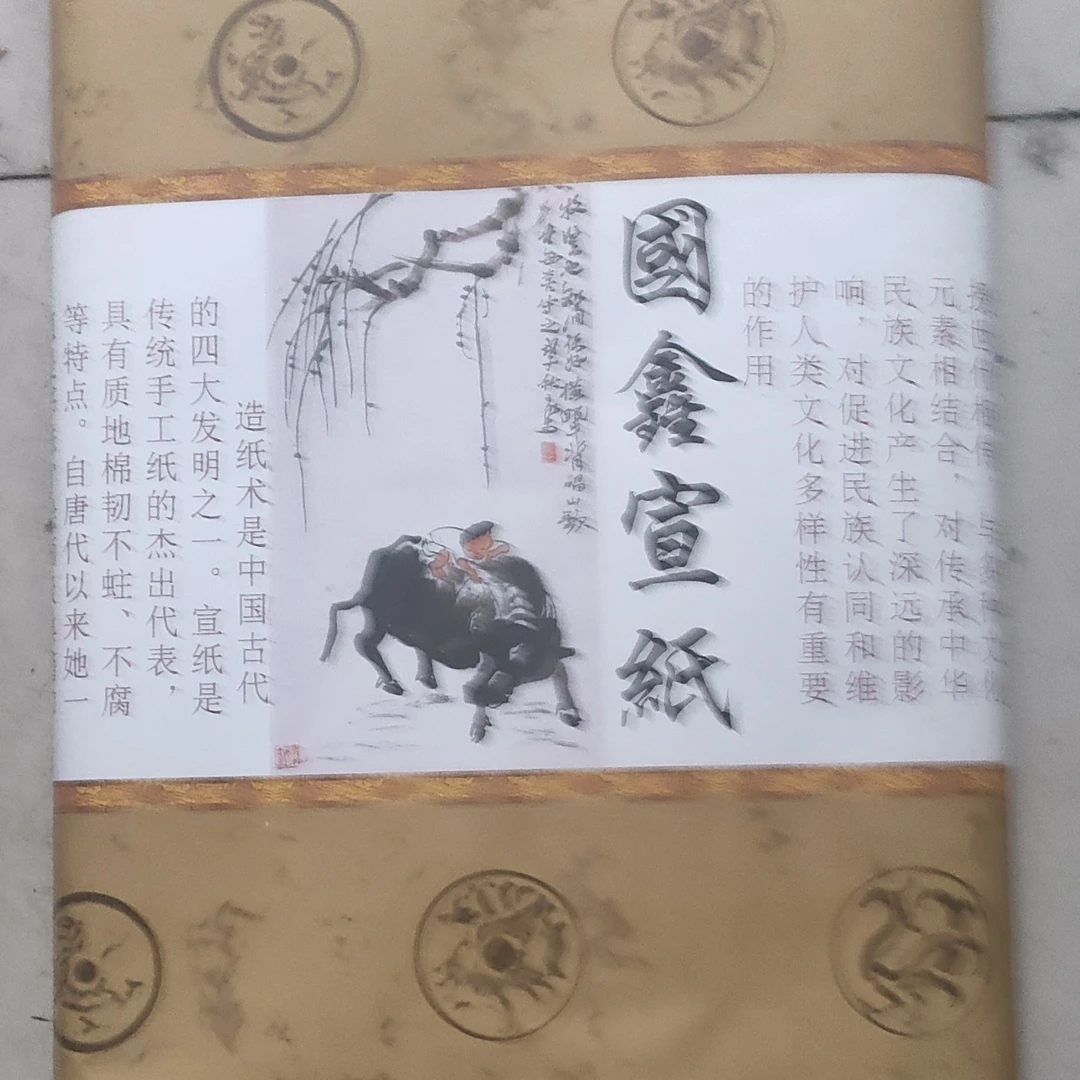 國鑫宣紙
元素相结合，对传承中华
民族文化产生了深远的影
响，对促进民族认同和维
护人类文化多样性有重要
的作用
造纸术是中国古代
的四大发明之一。宣纸是
传统手工纸的杰出代表，
具有质地棉韧不蛀、不腐
等特点。自唐代以来她一